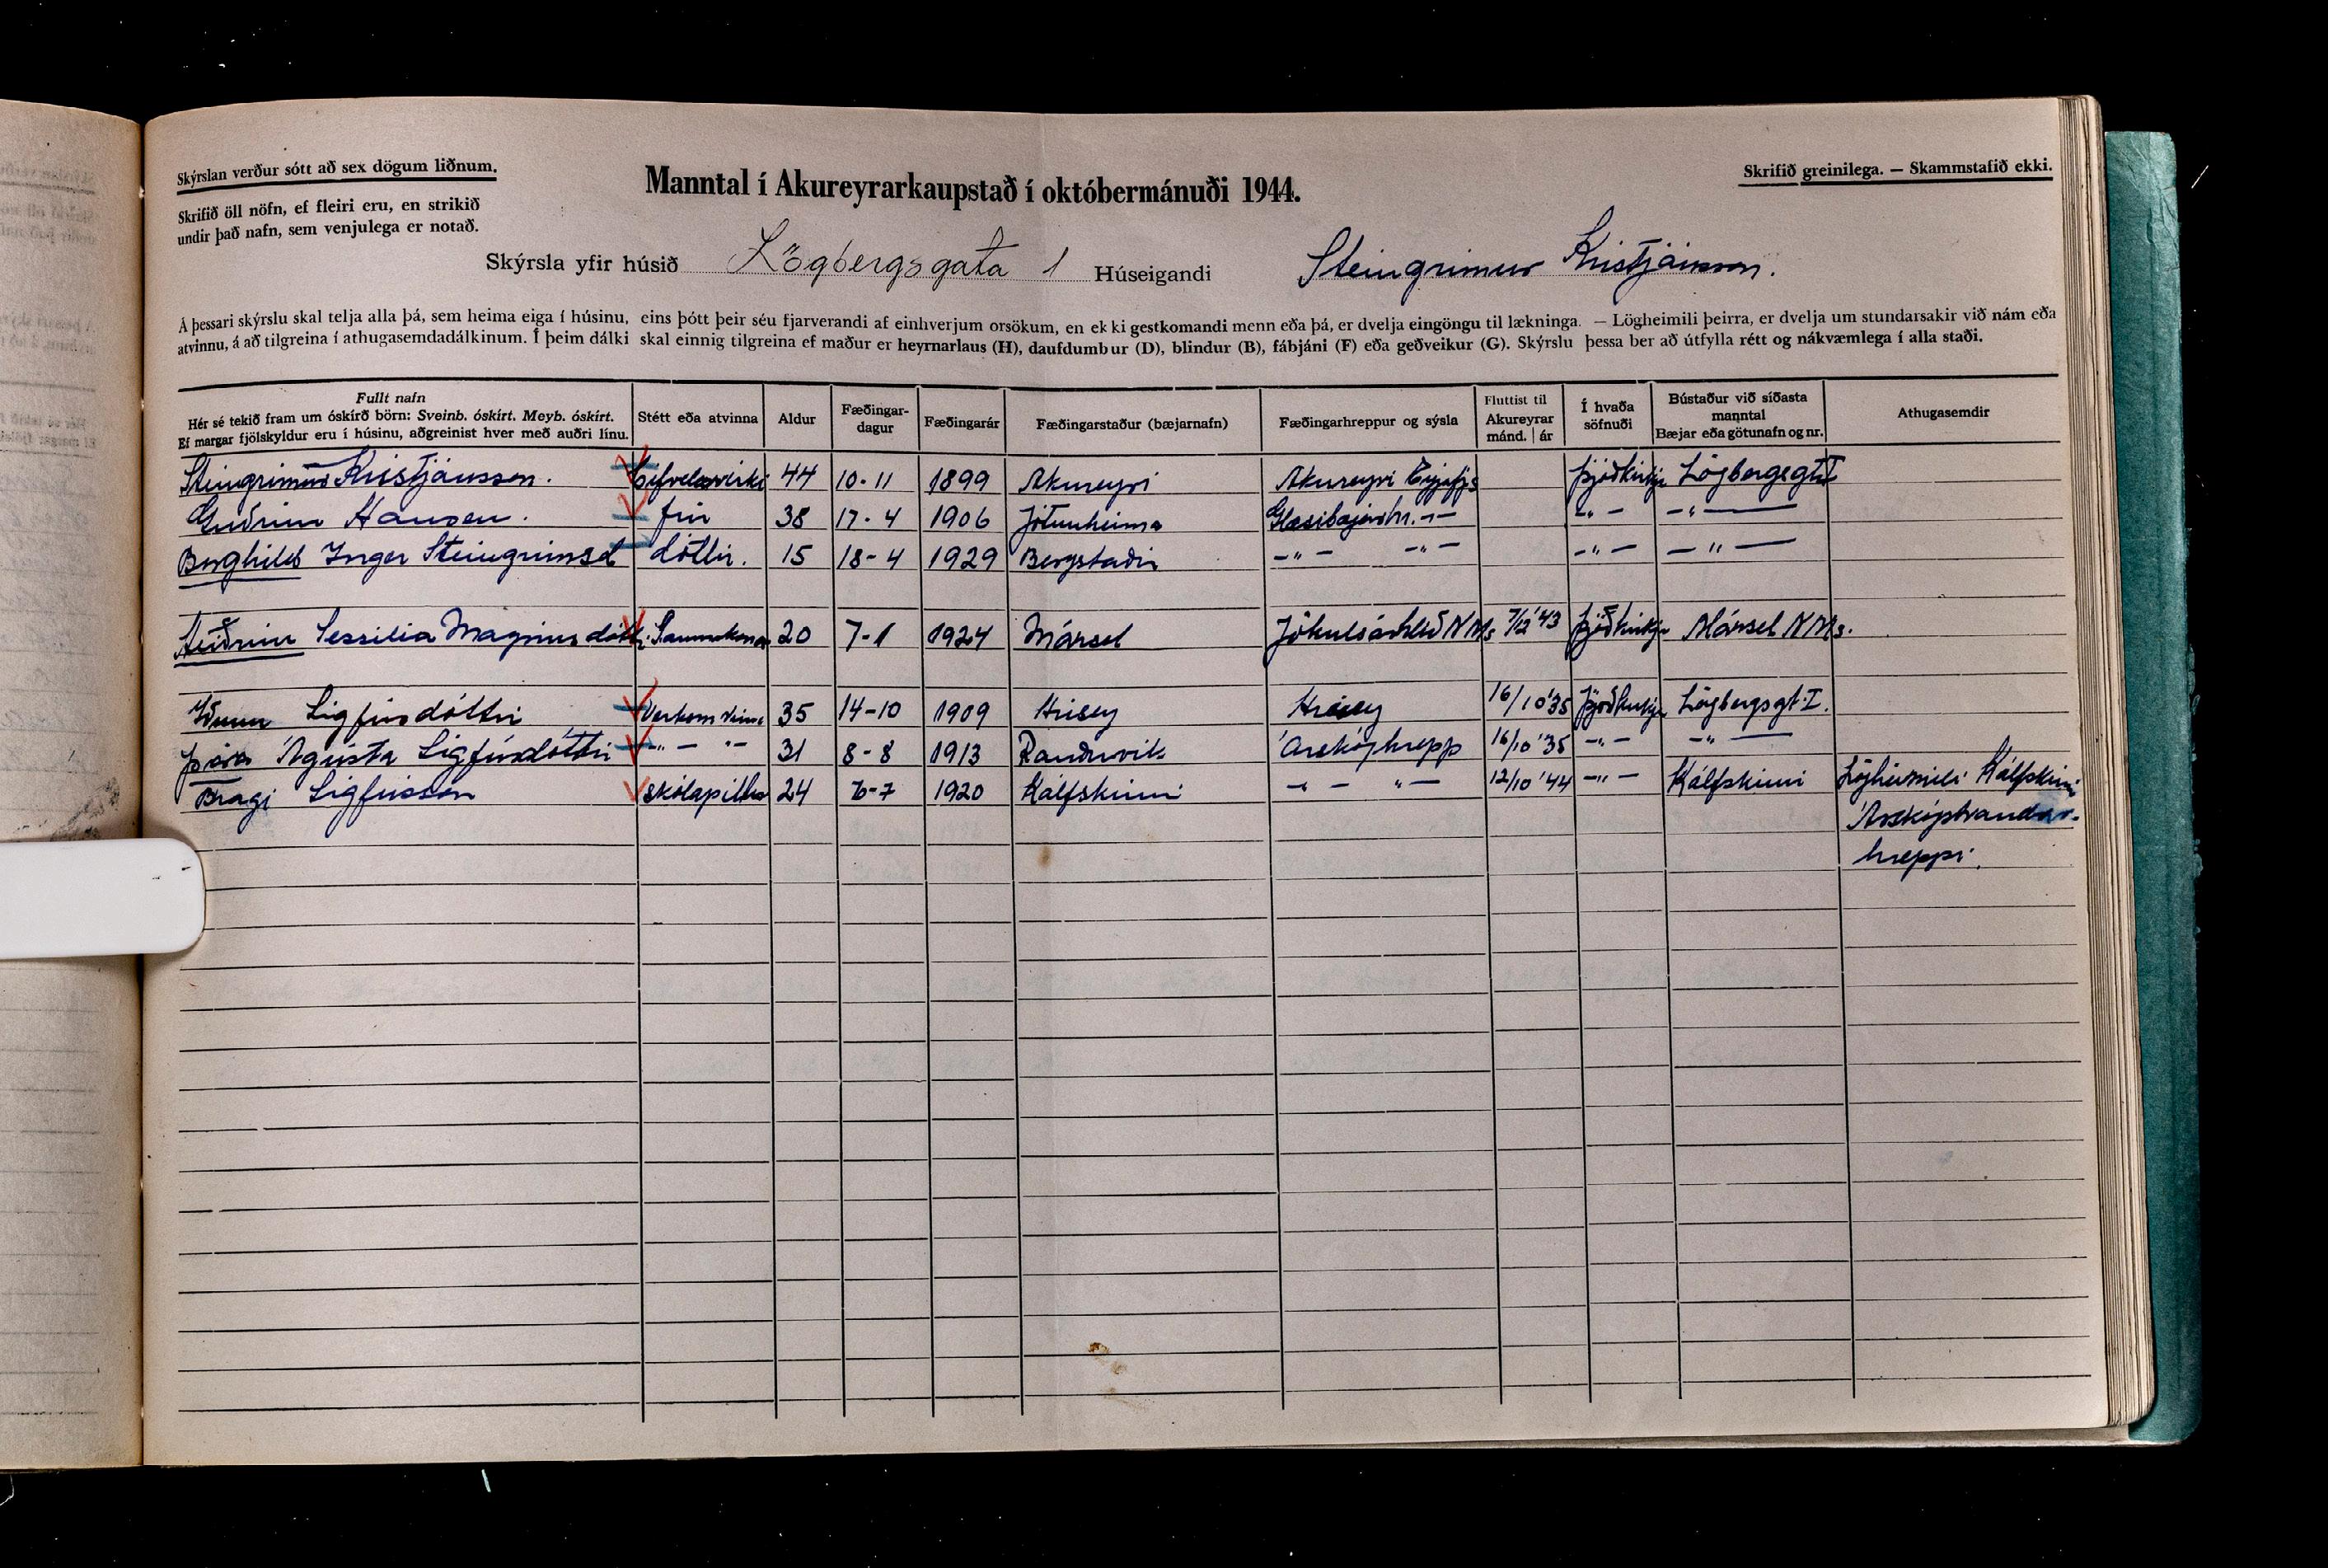 Skýrslan verður sótt að sex dögum liðnum.
Skrifið öll nöfn, ef fleiri eru, en strikið
undir það nafn, sem venjulega er notað.
Manntal í Akureyrarkaupstað í októbermánuði 1944.
Skrifið greinilega. — Skammstafið ekki.
Skýrsla yfir húsið Lögbergsgata 1 Húseigandi Steingrimur Kristjánsson.
Á þessari skýrslu skal telja alla þá, sem heima eiga í húsinu, eins þótt þeir séu fjarverandi af einhverjum orsökum, en ekki gestkomandi menn eða þá, er dvelja eingöngu til lækninga. — Lögheimili þeirra, er dvelja um stundarsakir við nám eða
atvinnu, á að tilgreina í athugasemdadálkinum. Í þeim dálki skal einnig tilgreina ef maður er heyrnarlaus (H), daufdumbur (D), blindur (B), fábjáni (F) eða geðveikur (G). Skýrslu þessa ber að útfylla rétt og nákvæmlega í alla staði.
Fullt nafn
Hér sé tekið fram um óskírð börn: Sveinb. óskírt. Meyb. óskírt.
Ef margar fjölskyldur eru í húsinu, aðgreinist hver með auðri línu.
Stétt eða atvinna
Aldur
Fæðingar-
dagur
Fæðingarár
Fæðingarstaður (bæjarnafn)
Fæðingarhreppur og sýsla
Fluttist til
Akureyrar
mánd. | ár
Í hvaða
söfnuði
Bústaður við síðasta
manntal
Bæjar eða götunafn og nr.
Athugasemdir
Steingrimur Kristjánsson. bifvelavirki 44 10-11 1899 Akureyri Akureyri Eyjafjs þjóðkirkju Lögbergsgt I
Guðrún Hansen. frú 38 17-4 1906 Jötunheima Glæsibæjarhr. -"- -"- -"-
Borghild Inger Steingrimsd dóttir. 15 18-4 1929 Bergstaðir -"- -"- -"- -"-
Heiðrún Sessilia Magnúsdóttir Saumakona 20 7-1 1924 Mársel Jökulsárhlíð N Ms 7/12 '43 þjóðkirkju Mársel N Ms.
Iðunn Sigfúsdóttir Verksm vinna 35 14-10 1909 Hrísey Hrísey 16/10 '35 þjóðkirkju Lögbergsgt I.
Þóra Ágústa Sigfúsdóttir -"- -"- 31 8-8 1913 Rauðuvík Arskóghrepp 16/10 '35 -"- -"-
Bragi Sigfússon skólapiltur 24 6-7 1920 Kálfskinni -"- "- 12/10 '44 -"- Kálfskinni Lögheimili Kálfskinni
Árskógstrandar-
hreppi.